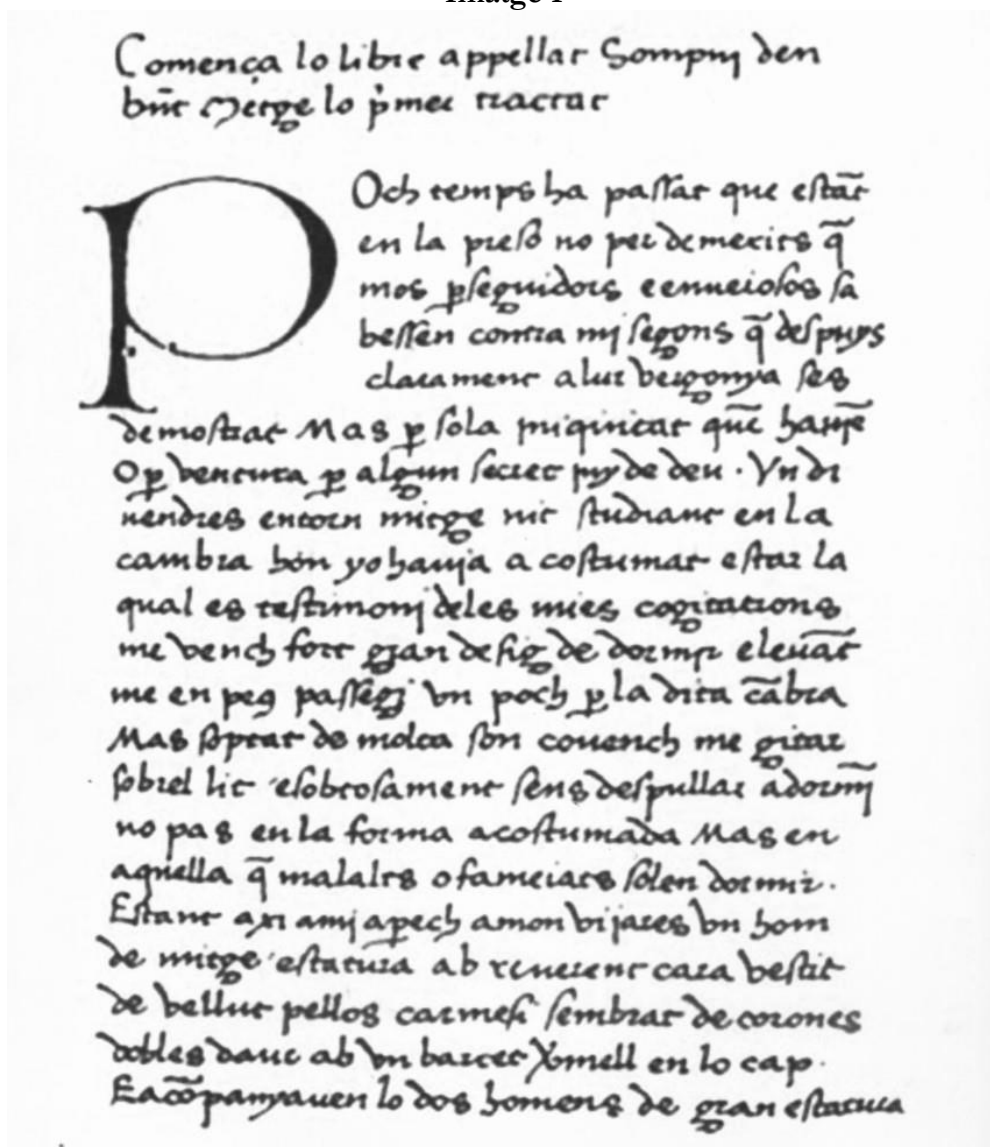 Imatge I
Comença lo libre appellat Sompnj den
bñt Metge lo p̉mer tractat
POch temps ha passat que estāt
en la presõ no per demerits q̃
mos ꝑseguidors e enueiosos sa
bessen contra mj segons q̃ despuys
clarament a lur vergonya ses
demostrat Mas ꝑ sola iniquitat que hauiē
O ꝑ ventura ꝑ algun secret iuy de deu · Vn di
uendres entorn mitge nit studiant en la
cambra hon yo hauia acostumat estar la
qual es testimonj deles mies cogitations
me vench fort gran desig de dormir e leuāt
me en peus passegj vn poch ꝑ la dita cābra
Mas soptat de molta son couench me gitar
sobrel lit e sobtosament sens despullar adormj
no pas en la forma acostumada Mas en
aquella q̃ malalts o fameiats solen dormir ·
Estant axi a mj aꝑech a mon vijares vn hom
de mitge estatura ab reuerent cara vestit
de vellut pellos carmesi sembrat de corones
dobles daur ab vn barret vermell en lo cap ·
E acōpanyauen lo dos homens de gran estatura